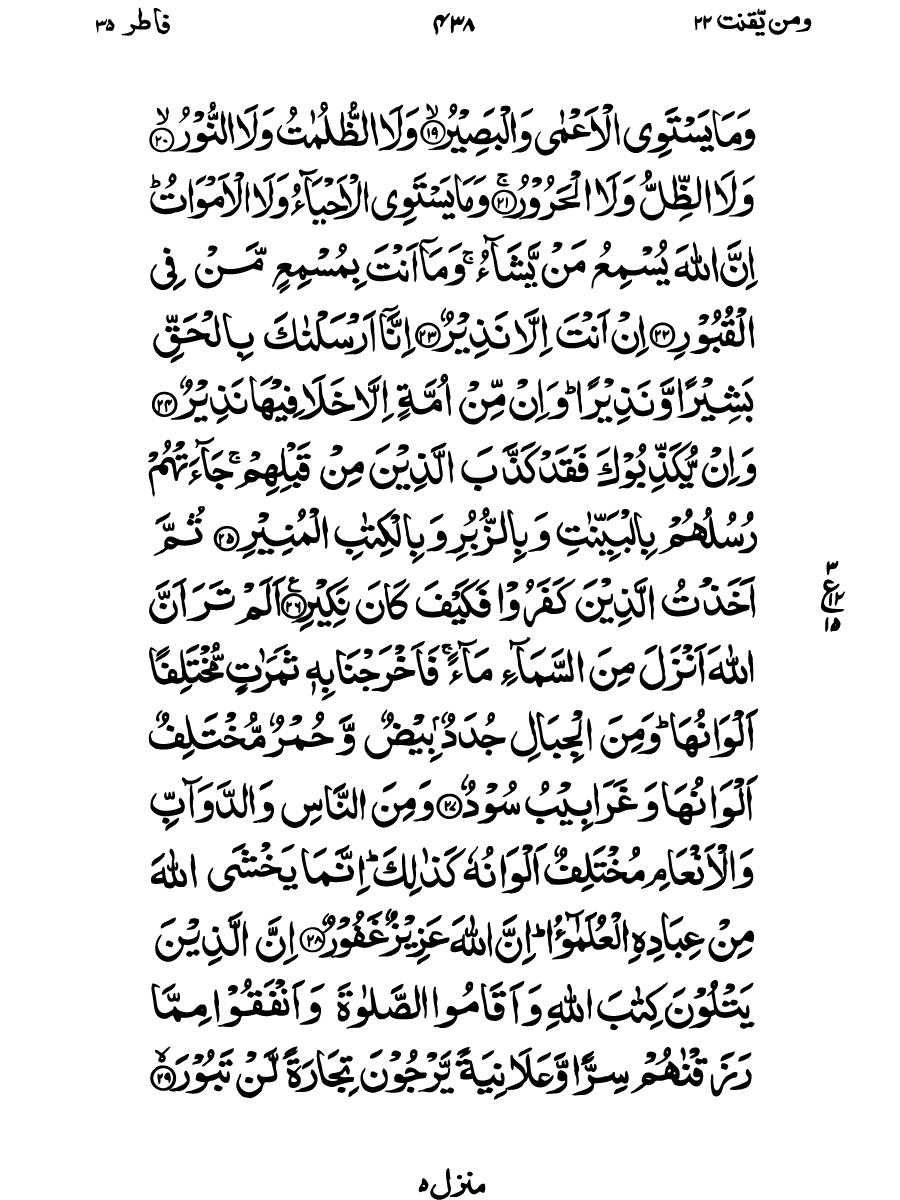 ومن یّقنت ۲۲
۴۳۸
فاطر ۳۵
وَمَا یَسْتَوِی الْاَعْمٰی وَالْبَصِیْرُ ۙ﴿۱۹﴾ وَلَا الظُّلُمٰتُ وَلَا النُّوْرُ ۙ﴿۲۰﴾
وَلَا الظِّلُّ وَلَا الْحَرُوْرُ ۚ﴿۲۱﴾ وَمَا یَسْتَوِی الْاَحْیَآءُ وَلَا الْاَمْوَاتُ ؕ
اِنَّ اللّٰهَ یُسْمِعُ مَنْ یَّشَآءُ ۚ وَمَاۤ اَنْتَ بِمُسْمِعٍ مَّنْ فِی
الْقُبُوْرِ ﴿۲۲﴾ اِنْ اَنْتَ اِلَّا نَذِیْرٌ ﴿۲۳﴾ اِنَّاۤ اَرْسَلْنٰكَ بِالْحَقِّ
بَشِیْرًا وَّنَذِیْرًا ؕ وَاِنْ مِّنْ اُمَّةٍ اِلَّا خَلَا فِیْهَا نَذِیْرٌ ﴿۲۴﴾
وَاِنْ یُّكَذِّبُوْكَ فَقَدْ كَذَّبَ الَّذِیْنَ مِنْ قَبْلِهِمْ ۚ جَآءَتْهُمْ
رُسُلُهُمْ بِالْبَیِّنٰتِ وَبِالزُّبُرِ وَبِالْكِتٰبِ الْمُنِیْرِ ﴿۲۵﴾ ثُمَّ
اَخَذْتُ الَّذِیْنَ كَفَرُوْا فَكَیْفَ كَانَ نَكِیْرِ ﴿۲۶﴾ۧ اَلَمْ تَرَ اَنَّ
۳
ع ۱۲
۱۵
اللّٰهَ اَنْزَلَ مِنَ السَّمَآءِ مَآءً ۚ فَاَخْرَجْنَا بِهٖ ثَمَرٰتٍ مُّخْتَلِفًا
اَلْوَانُهَا ؕ وَمِنَ الْجِبَالِ جُدَدٌۢ بِیْضٌ وَّحُمْرٌ مُّخْتَلِفٌ
اَلْوَانُهَا وَغَرَابِیْبُ سُوْدٌ ﴿۲۷﴾ وَمِنَ النَّاسِ وَالدَّوَآبِّ
وَالْاَنْعَامِ مُخْتَلِفٌ اَلْوَانُهٗ كَذٰلِكَ ؕ اِنَّمَا یَخْشَی اللّٰهَ
مِنْ عِبَادِهِ الْعُلَمٰٓؤُا ؕ اِنَّ اللّٰهَ عَزِیْزٌ غَفُوْرٌ ﴿۲۸﴾ اِنَّ الَّذِیْنَ
یَتْلُوْنَ كِتٰبَ اللّٰهِ وَاَقَامُوا الصَّلٰوةَ وَاَنْفَقُوْا مِمَّا
رَزَقْنٰهُمْ سِرًّا وَّعَلَانِیَةً یَّرْجُوْنَ تِجَارَةً لَّنْ تَبُوْرَ ۙ﴿۲۹﴾
منزل ۵